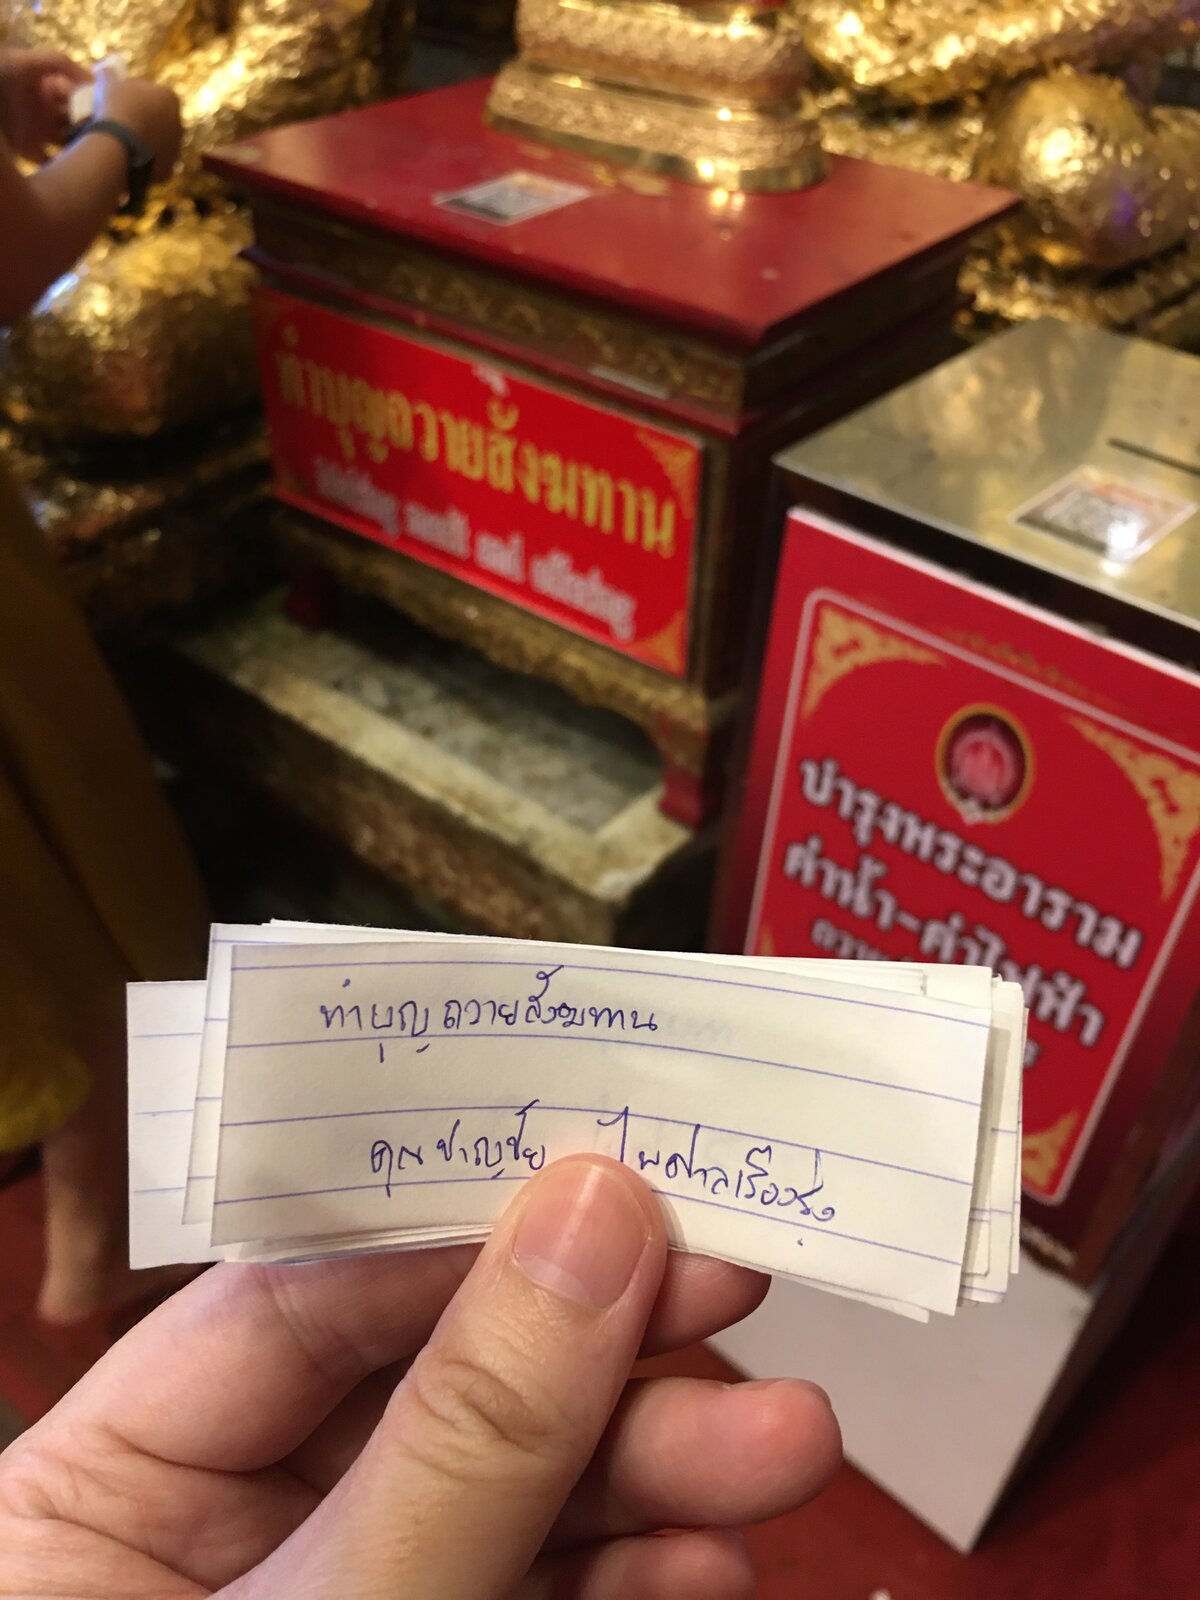 ทำบุญถวายสังฆทาน
บำรุงพระอาราม
ค่าน้ำ-ค่าไฟฟ้า
ทำบุญ ถวายสังฆทาน
คุณชาญชัย ไพศาลเรืองรุ่ง